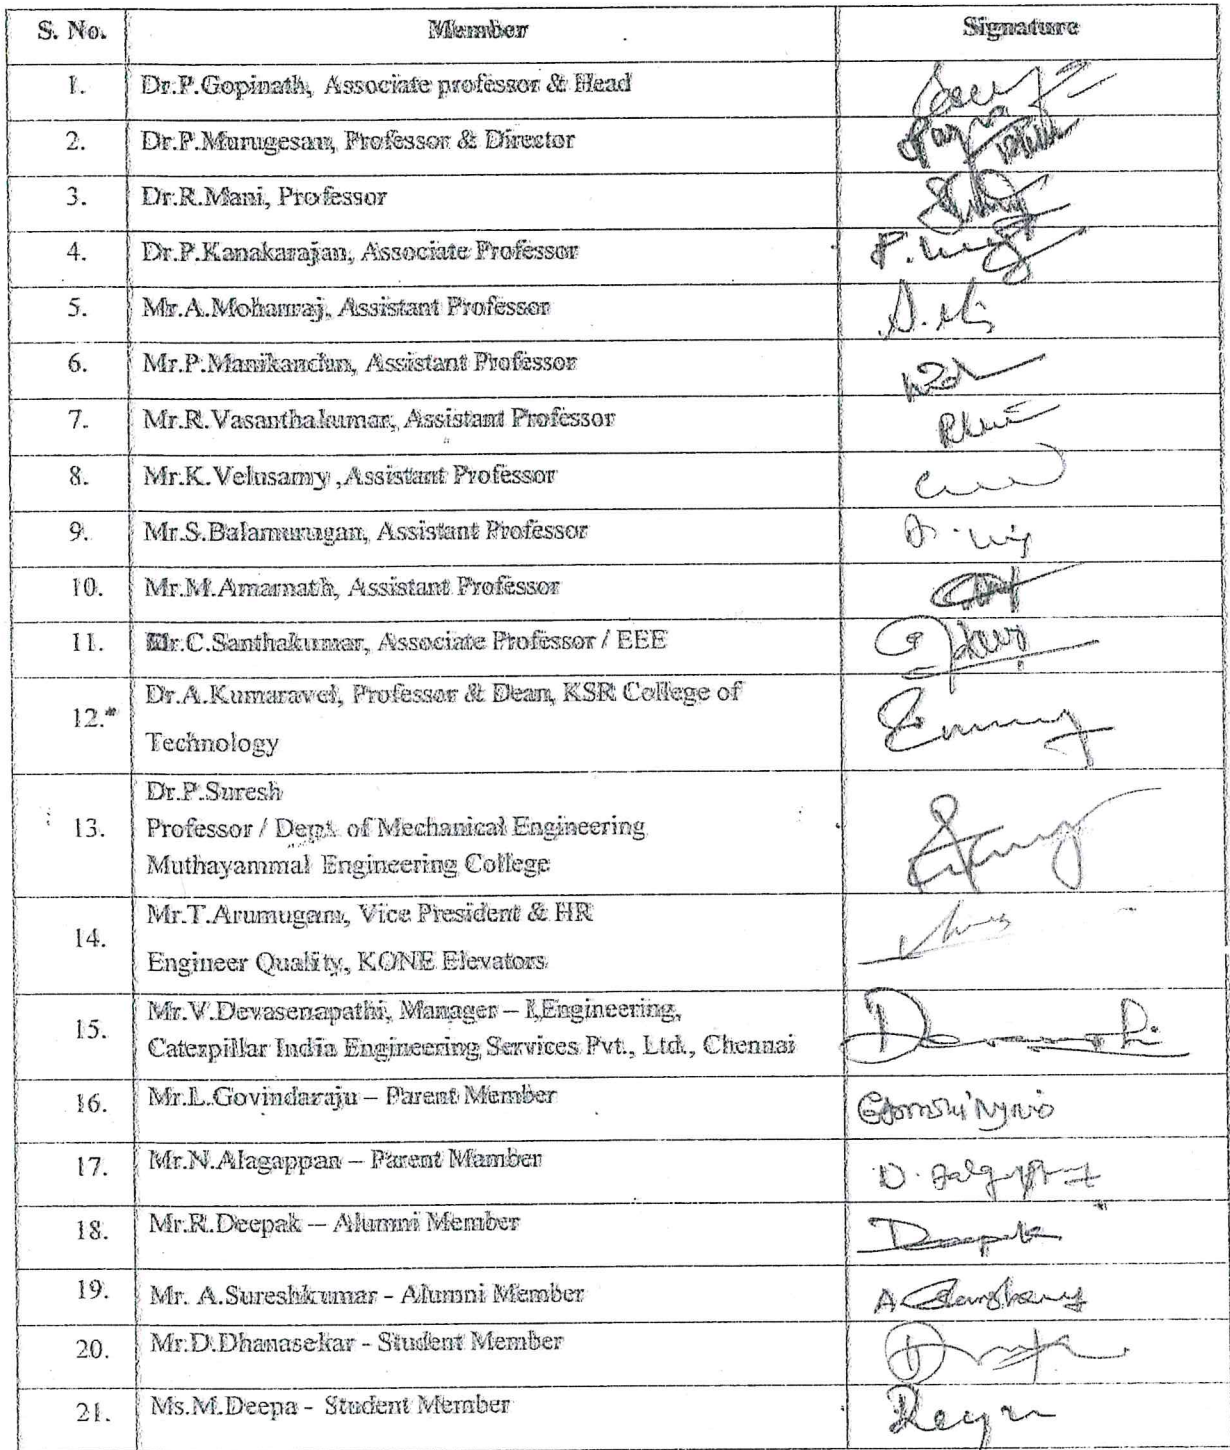 S. No. Member Signature
1. Dr.P.Gopinath, Associate professor & Head
2. Dr.P.Murugesan, Professor & Director
3. Dr.R.Mani, Professor
4. Dr.P.Kanakarajan, Associate Professor
5. Mr.A.Mohanraj, Assistant Professor
6. Mr.P.Manikandan, Assistant Professor
7. Mr.R.Vasanthakumar, Assistant Professor
8. Mr.K.Velusamy ,Assistant Professor
9. Mr.S.Balamurugan, Assistant Professor
10. Mr.M.Amarnath, Assistant Professor
11. Mr.C.Santhakumar, Associate Professor / EEE
Dr.A.Kumaravel, Professor & Dean, KSR College of
12.
Technology
Dr.P.Suresh
13. Professor / Dept. of Mechanical Engineering
Muthayammal Engineering College
Mr.T.Arumugam, Vice President & HR
14.
Engineer Quality, KONE Elevators
Mr.V.Devasenapathi, Manager – I,Engineering,
15.
Caterpillar India Engineering Services Pvt., Ltd., Chennai
16. Mr.L.Govindaraju – Parent Member
17. Mr.N.Alagappan – Parent Mamber
18. Mr.R.Deepak – Alumni Member Deepak
19. Mr. A.Sureshkumar - Alumni Member
20. Mr.D.Dhanasekar - Student Member
21. Ms.M.Deepa - Student Member